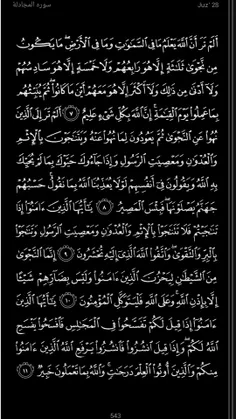 سورة المجادلة
Juz' 28
أَلَمْ تَرَ أَنَّ ٱللَّهَ يَعْلَمُ مَا فِى ٱلسَّمَٰوَٰتِ وَمَا فِى ٱلْأَرْضِ مَا يَكُونُ
مِن نَّجْوَىٰ ثَلَٰثَةٍ إِلَّا هُوَ رَابِعُهُمْ وَلَا خَمْسَةٍ إِلَّا هُوَ سَادِسُهُمْ
وَلَآ أَدْنَىٰ مِن ذَٰلِكَ وَلَآ أَكْثَرَ إِلَّا هُوَ مَعَهُمْ أَيْنَ مَا كَانُوا۟ ثُمَّ يُنَبِّئُهُم
بِمَا عَمِلُوا۟ يَوْمَ ٱلْقِيَٰمَةِ إِنَّ ٱللَّهَ بِكُلِّ شَىْءٍ عَلِيمٌ ٧ أَلَمْ تَرَ إِلَى ٱلَّذِينَ
نُهُوا۟ عَنِ ٱلنَّجْوَىٰ ثُمَّ يَعُودُونَ لِمَا نُهُوا۟ عَنْهُ وَيَتَنَٰجَوْنَ بِٱلْإِثْمِ
وَٱلْعُدْوَٰنِ وَمَعْصِيَتِ ٱلرَّسُولِ وَإِذَا جَآءُوكَ حَيَّوْكَ بِمَا لَمْ يُحَيِّكَ
بِهِ ٱللَّهُ وَيَقُولُونَ فِىٓ أَنفُسِهِمْ لَوْلَا يُعَذِّبُنَا ٱللَّهُ بِمَا نَقُولُ حَسْبُهُمْ
جَهَنَّمُ يَصْلَوْنَهَا فَبِئْسَ ٱلْمَصِيرُ ٨ يَٰٓأَيُّهَا ٱلَّذِينَ ءَامَنُوٓا۟ إِذَا
تَنَٰجَيْتُمْ فَلَا تَتَنَٰجَوْا۟ بِٱلْإِثْمِ وَٱلْعُدْوَٰنِ وَمَعْصِيَتِ ٱلرَّسُولِ وَتَنَٰجَوْا۟
بِٱلْبِرِّ وَٱلتَّقْوَىٰ وَٱتَّقُوا۟ ٱللَّهَ ٱلَّذِىٓ إِلَيْهِ تُحْشَرُونَ ٩ إِنَّمَا ٱلنَّجْوَىٰ
مِنَ ٱلشَّيْطَٰنِ لِيَحْزُنَ ٱلَّذِينَ ءَامَنُوا۟ وَلَيْسَ بِضَآرِّهِمْ شَيْـًٔا
إِلَّا بِإِذْنِ ٱللَّهِ وَعَلَى ٱللَّهِ فَلْيَتَوَكَّلِ ٱلْمُؤْمِنُونَ ١٠ يَٰٓأَيُّهَا ٱلَّذِينَ
ءَامَنُوٓا۟ إِذَا قِيلَ لَكُمْ تَفَسَّحُوا۟ فِى ٱلْمَجَٰلِسِ فَٱفْسَحُوا۟ يَفْسَحِ
ٱللَّهُ لَكُمْ وَإِذَا قِيلَ ٱنشُزُوا۟ فَٱنشُزُوا۟ يَرْفَعِ ٱللَّهُ ٱلَّذِينَ ءَامَنُوا۟
مِنكُمْ وَٱلَّذِينَ أُوتُوا۟ ٱلْعِلْمَ دَرَجَٰتٍ وَٱللَّهُ بِمَا تَعْمَلُونَ خَبِيرٌ ١١
543